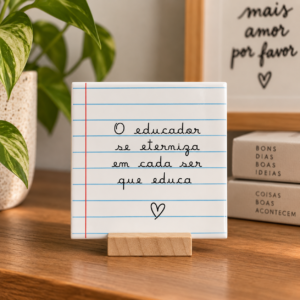 mais
amor
por favor
O educador
se eterniza
em cada ser
que educa
BONS
DIAS
BOAS
IDEIAS
COISAS
BOAS
ACONTECEM